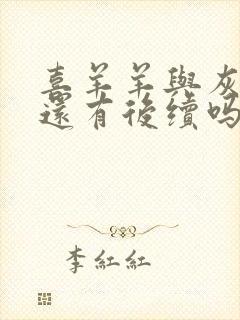 喜羊羊與灰
還有後續嗎
李紅紅